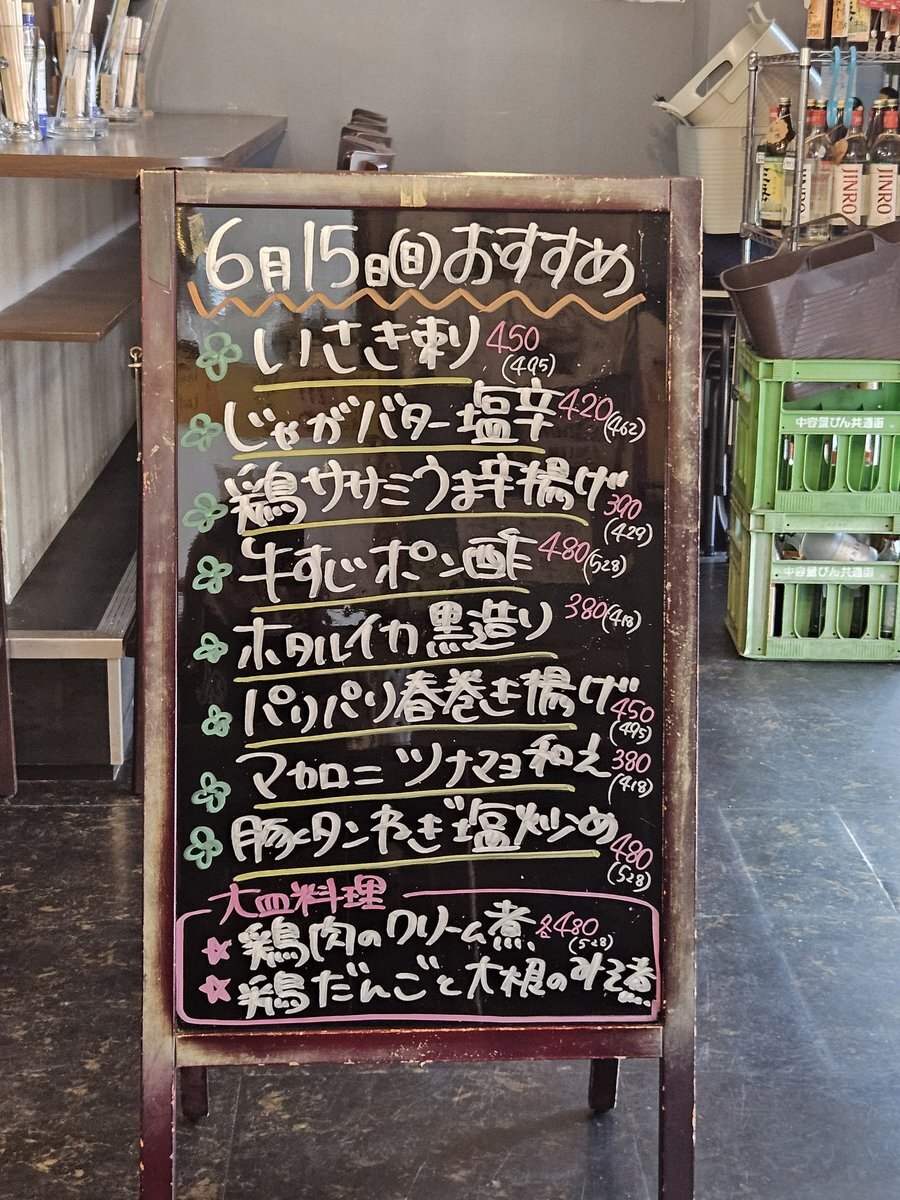 6月15日(日)おすすめ
いさき刺り 450
(495)
じゃがバター塩辛 420
(462)
鶏ササミうま辛揚げ 390
(429)
牛すじポン酢 480
(528)
ホタルイカ黒造り 380
(418)
パリパリ春巻き揚げ 450
(495)
マカロニツナマヨ和え 380
(418)
豚タンねぎ塩炒め 480
(528)
大皿料理
鶏肉のクリーム煮 各480
(528)
鶏だんごと大根のみそ煮
JINRO
JINRO
JINRO
中容量びん共通函
中容量びん共通函